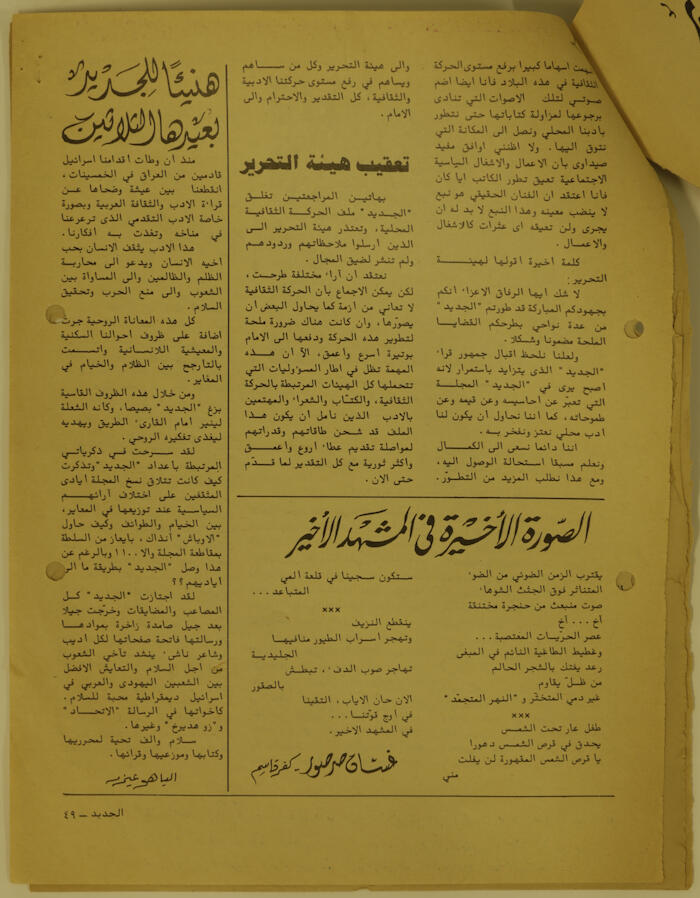 ـهمت اسهاما كبيرا برفع مستوى الحركة
الثقافية في هذه البلاد فأنا ايضا اضم
صوتي لتلك الاصوات التي تنادى
برجوعها لمزاولة كتاباتها حتى نتطور
بأدبنا المحلي ونصل الى المكانة التي
نتوق اليها. ولا اظنني اوافق مفيد
صيداوى بأن الاعمال والاشغال السياسية
الاجتماعية تعيق تطور الكاتب ايا كان
فأنا اعتقد ان الفنان الحقيقي هو نبع
لا ينضب معينه وهذا النبع لا بد له ان
يجرى ولن تعيقه اى عثرات كالاشغال
والاعمال.
كلمة اخيرة اقولها لهيئة
التحرير:
لا شك ايها الرفاق الاعزاء أنكم
بجهودكم المباركة قد طورتم "الجديد"
من عدة نواحي بطرحكم القضايا
الملحة مضمونا وشكلا.
ولعلنا نلحظ اقبال جمهور قراء
"الجديد" الذى يتزايد باستمرار لانه
اصبح يرى في "الجديد" المجلة
التي تعبّر عن أحاسيسه وعن قيمه وعن
طموحاته، كما أننا نحاول أن يكون لنا
أدب محلي نعتز ونفخر به.
اننا دائما نسعى الى الكمال
ونعلم مسبقا استحالة الوصول اليه،
ومع هذا نطلب المزيد من التطوّر.
والى هيئة التحرير وكل من ساهم
ويساهم في رفع مستوى حركتنا الادبية
والثقافية، كل التقدير والاحترام والى
الامام.
تعقيب هيئة التحرير
بهاتين المراجعتين تغلق
"الجديد" ملف الحركة الثقافية
المحلية، وتعتذر هيئة التحرير الى
الذين أرسلوا ملاحظاتهم وردودهم
ولم تنشر لضيق المجال.
نعتقد ان آراء مختلفة طرحت،
لكن يمكن الاجماع بأن الحركة الثقافية
لا تعاني من أزمة كما يحاول البعض أن
يصوّرها، وان كانت هناك ضرورة ملحة
لتطوير هذه الحركة ودفعها الى الامام
بوتيرة أسرع وأعمق، الآ ان هذه
المهمة تظل في اطار المسؤوليات التي
تتحملها كل الهيئات المرتبطة بالحركة
الثقافية، والكتّاب والشعراء والمهتمين
بالادب الذين نأمل أن يكون هذا
الملف قد شحن طاقاتهم وقدراتهم
لمواصلة تقديم عطاء أروع وأعمق
وأكثر ثورية مع كل التقدير لما قدّم
حتى الان.
هنيئا للجديد
بعيدها الثلاثين
منذ ان وطأت أقدامنا اسرائيل
قادمين من العراق في الخمسينات،
انقطعنا بين عيشة وضحاها عن
قراءة الادب والثقافة العربية وبصورة
خاصة الادب التقدمي الذى ترعرعنا
في مناخه وتغذت به أفكارنا.
هذا الادب يثقف الانسان بحب
اخيه الانسان ويدعو الى محاربة
الظلم والظالمين والى المساواة بين
الشعوب والى منع الحرب وتحقيق
السلام.
كل هذه المعاناة الروحية جرت
اضافة على ظروف احوالنا السكنية
والمعيشية اللاانسانية واتسمت
بالتأرجح بين الظلام والخيام في
المعابر.
ومن خلال هذه الظروف القاسية
بزغ "الجديد" بصيصا، وكأنه الشعلة
لينير امام القارىء الطريق ويهديه
ليغذى تفكيره الروحي.
لقد سرحت في ذكرياتي
المرتبطة بأعداد "الجديد" وتذكرت
كيف كانت تتلاق نسخ المجلة أيادى
المثقفين على اختلاف آرائهم
السياسية عند توزيعها في المعابر،
بين الخيام والطوائف وكيف حاول
"الاوباش" آنذاك، بايعاز من السلطة
بمقاطعة المجلة والا ١١٠٠ وبالرغم عن
هذا وصل "الجديد" بطريقة ما الى
أياديهم؟؟
لقد اجتازت "الجديد" كل
المصاعب والمضايقات وخرّجت جيلا
بعد جيل صامدة زاخرة بموادها
ورسالتها فاتحة صفحاتها لكل أديب
وشاعر ناشىء ينشد تآخي الشعوب
من أجل السلام والتعايش الافضل
بين الشعبين اليهودى والعربي في
اسرائيل ديمقراطية محبة للسلام.
كأخواتها في الرسالة "الاتحاد"
و"زو هديرخ" وغيرها.
سلام والف تحية لمحرريها
وكتابها وموزعيها وقرائها.
الصّورة الأخيرة في المشهد الأخير
يقترب الزمن الضوئي من الضوء
المتناثر فوق الجثث الشوهاء
صوت منبعث من حنجرة مختنقة
آخ... آخ
عصر الحرّيات المغتصبة...
وغطيط الطاغية النائم في المبغى
رعد يفتك بالشجر الحالم
من ظلّ يقاوم
غير دمي المتخثّر و "النهر المتجمّد"
×××
طفل عار تحت الشمس
يحدق في قرص الشمس دهورا
يا قرص الشمس المقهورة لن يفلت
مني
ستكون سجينا في قلعة ألمي
المتباعد...
×××
ينقطع النزيف
وتهجر أسراب الطيور منافيها
الجليدية
تهاجر صوب الدفء، تبطش
بالصقور
الان حان الاياب، التقينا
في أوج قوّتنا...
في المشهد الاخير.
غسان صرصور - كفر قاسم
الجديد – ٤٩